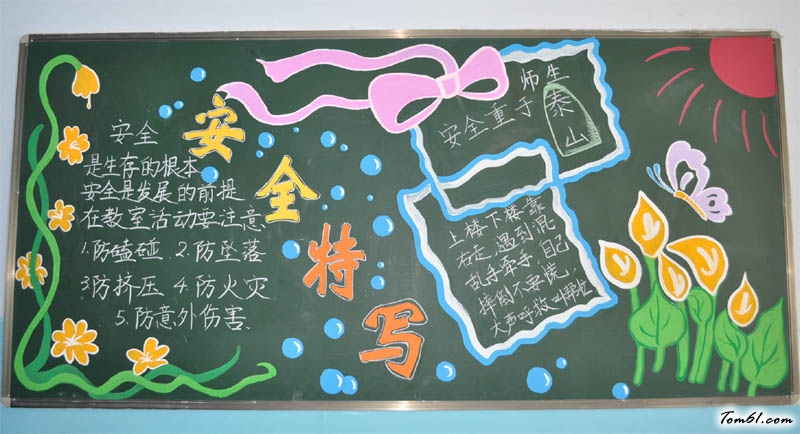 安全
是生存的根本
安全是发展的前提
在教室活动要注意
1.防磕碰 2.防坠落
3.防挤压 4.防火灾
5.防意外伤害
安全特写
师生
安全重于泰山
上楼下楼靠
右走,遇到混
乱手牵手,自己
摔倒不要慌,
大声呼救叫帮忙
Tom61.com